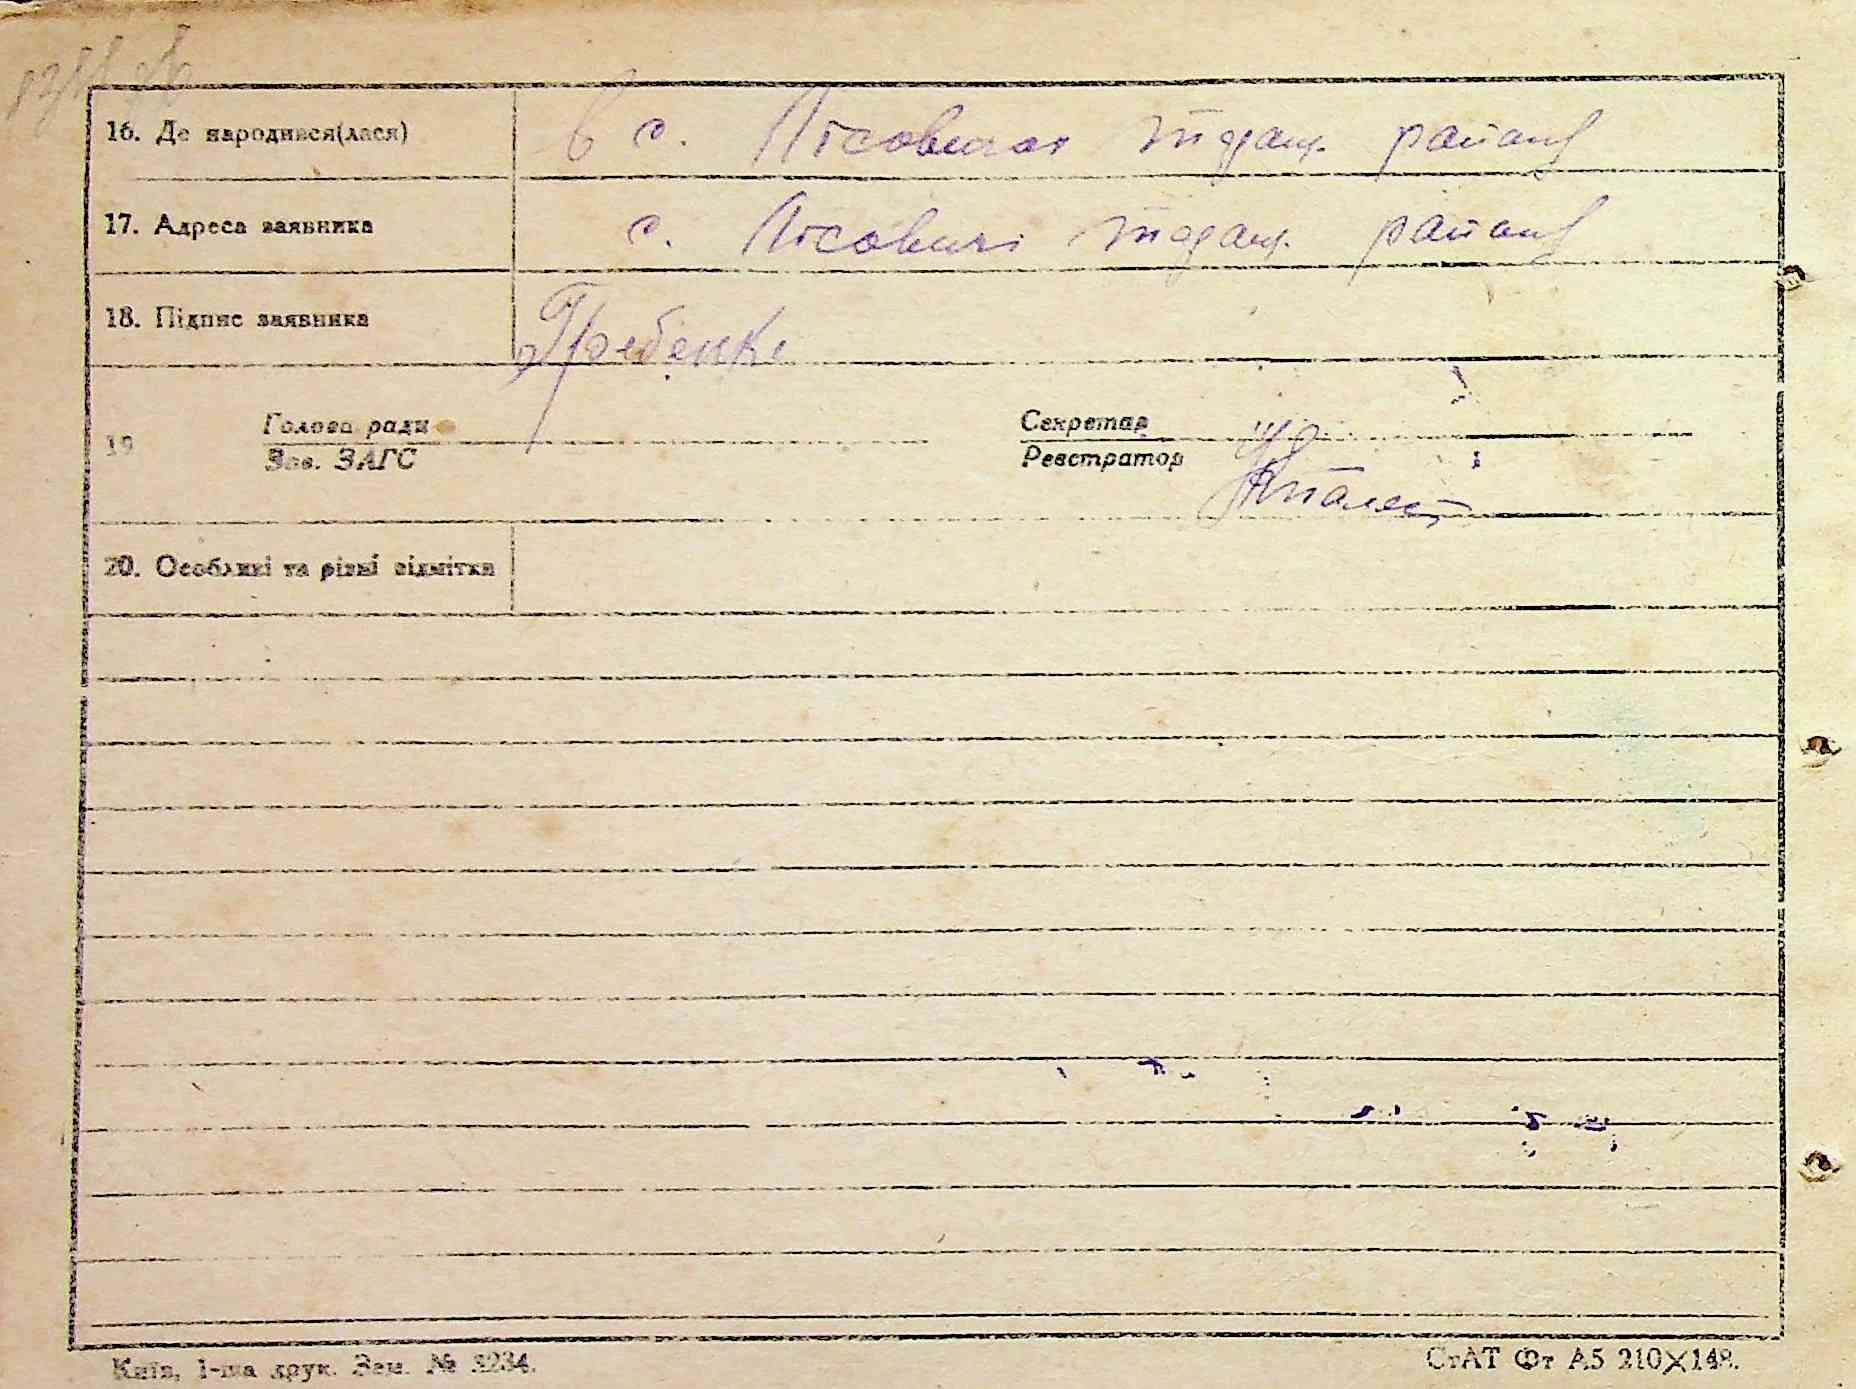 16. Де народився(лася) в с. Лісовичах таращ. району
17. Адреса заявника с. Лісовичі таращ. району
18. Підпис заявника Гребенко
19 Голова ради Секретар
Зав. ЗАГС Реєстратор
20. Особливі та різні відмітки
Київ, 1-ша друк. Зам. № 3234.
СтАТ Фт А5 210×148.